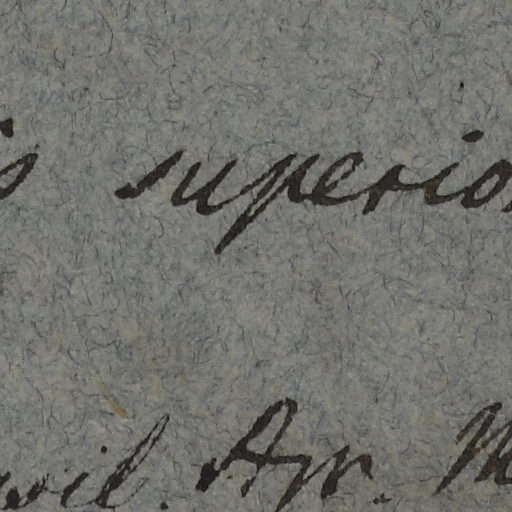 is superior
vil. Apr. M